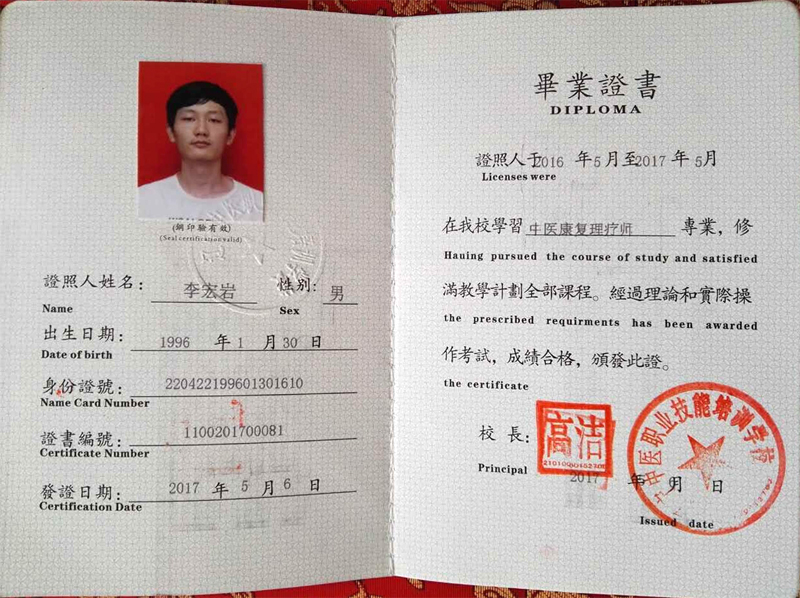 (鋼印驗有效)
(Seal certification valid)
證照人姓名: 李宏岩 性别: 男
Name Sex
出生日期: 1996 年 1 月 30 日
Date of birth
身份證號: 220422199601301610
Name Card Number
證書編號: 1100201700081
Certificate Number
發證日期: 2017 年 5 月 6 日
Certification Date
畢業證書
DIPLOMA
證照人于2016 年 5 月至2017 年 5月
Licenses were
在我校學習 中医康复理疗师 專業, 修
Hauing pursued the course of study and satisfied
滿教學計劃全部課程。經過理論和實際操
the prescribed requirments has been awarded
作考試, 成績合格, 頒發此證。
the certificate
校長: 高洁
Principal
2017 年 6月 日
Issued date
中医职业技能培训学校